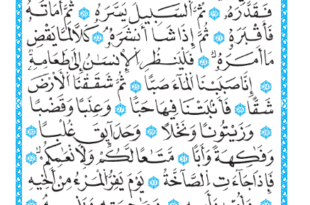 فَقَدَّرَهُۥ ۝ ثُمَّ ٱلسَّبِيلَ يَسَّرَهُۥ ۝ ثُمَّ أَمَاتَهُۥ
فَأَقْبَرَهُۥ ۝ ثُمَّ إِذَا شَآءَ أَنشَرَهُۥ ۝ كَلَّا لَمَّا يَقْضِ
مَآ أَمَرَهُۥ ۝ فَلْيَنظُرِ ٱلْإِنسَٰنُ إِلَىٰ طَعَامِهِۦٓ
۝ إِنَّا صَبَبْنَا ٱلْمَآءَ صَبًّا ۝ ثُمَّ شَقَقْنَا ٱلْأَرْضَ
شَقًّا ۝ فَأَنۢبَتْنَا فِيهَا حَبًّا ۝ وَعِنَبًا وَقَضْبًا
۝ وَزَيْتُونًا وَنَخْلًا ۝ وَحَدَآئِقَ غُلْبًا ۝
وَفَٰكِهَةً وَأَبًّا ۝ مَّتَٰعًا لَّكُمْ وَلِأَنْعَٰمِكُمْ ۝
فَإِذَا جَآءَتِ ٱلصَّآخَّةُ ۝ يَوْمَ يَفِرُّ ٱلْمَرْءُ مِنْ أَخِيهِ